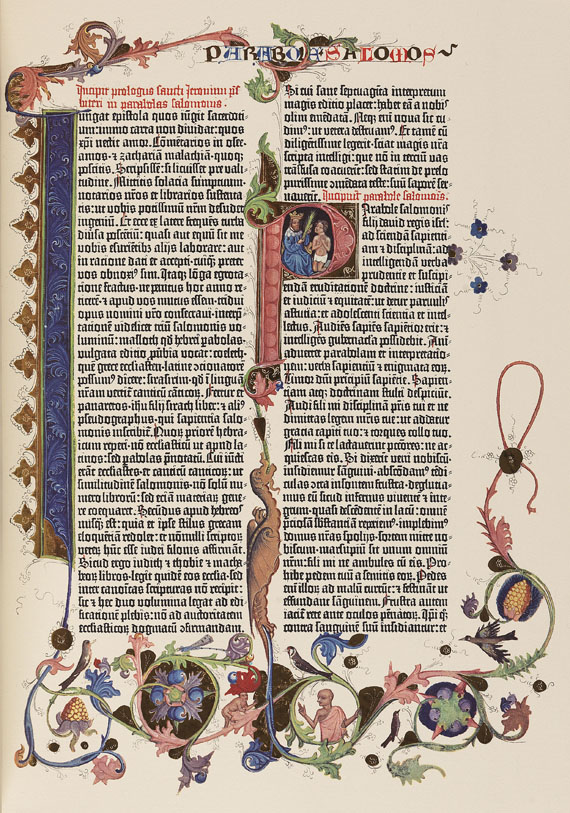 PARABOLE SALOMOIS
Incipit prologus sancti Jeronimi p̄s-
biteri in parabolas salomonis.
Iungat epistola quos iūgit sacerdoti-
um: immo carta non dividat: quos
xp̄i nectit amor. Cōmētarios in osee.
amos. ⁊ zachariā malachiā. quoqꝫ
poscitis. Scripsissē: si licuisset pre vali-
tudine. Mittitis solacia sumptuum.
notarios nr̄os et librarios sustenta-
tis: ut vobis potissimū nr̄m desudet
ingeniū. Et ecce ex latere frequēs turba
diūsa poscentiū: quasi aut equū sit me
vobis esuriētibꝫ alijs laborare: aut
in ratione dati et accepti. cuiqꝫ preter
vos obnoxiꝰ sim. Itaqꝫ lōga egrota-
tione fractus. ne penitus hoc anno re-
ticerē. ⁊ apud vos mutus essem. tridui
opus nomini vr̄o consecraui. interp̄-
tationē videlicet triū salomonis vo-
luminū: masloth qd̄ hebrei ꝑabolas.
vulgata editio ꝓūbia vocat: coeleth.
quē grece ecclesiasten. latine ↄcionatorē
possumꝰ dicere: sirasirim. qd̄ ī linguā
nr̄am vertit̄ canticū canticoꝝ. Fertur et
panaretos. ihū filij sirach liber: ⁊ aliꝰ
pseudographus. qui sapientia salo-
monis inscribit̄. Quoꝝ priorē hebra-
icum repperi. nō ecclesiasticū ut apud la-
tinos: sed ꝑabolas p̄notatū. Cui iūcti
erāt ecclesiastes. et canticū canticoꝝ: ut
similitudinē salomonis. nō solū nu-
mero libroꝝ: sed etiā materiaꝝ gene-
re coequaret. Secūdus apud hebreos
nusqꝫ est: quia et ipse stilus grecam
eloquētiā redolet: et nōnulli scriptoꝝ
veteꝝ hūc esse iudei filonis affirmāt.
Sicud ergo iudith ⁊ thobie ⁊ macha-
beoꝝ libros. legit quidē eos ecclesia. sed
inter canonicas scripturas nō recipit:
sic ⁊ hec duo volumina legat ad edi-
ficationē plebis: nō ad auctoritatem
ecclesiasticoꝝ dogmatū ↄfirmandam.
Si cui sane septuagīta interpretum
magis editio placet: habet eā a nobis
olim emēdatā. Neqꝫ enī noua sic cu-
dimꝰ: ut vetera destruamꝰ. Et tamē cū
diligētissime legerit. sciat magis nr̄a
scripta intelligi: que nō in terciū vas
trāsfusa coacuerīt: sed statim de prelo
purissime ↄmēdata teste: suū saporē ser-
uauerīt. Incipiūt parabole salomonis.
Parabole salomonis
filij dauid regis isrl̄:
ad sciendā sapienti-
am ⁊ disciplinā: ad
intelligendā verba
prudentie et suscipi-
endā eruditionē doctrine: iusticiā
et iudiciū ⁊ equitatē: ut detur paruulis
astucia: et adolescenti scientia et intel-
lectus. Audiēs sapiēs sapiētior erit: ⁊
intelligēs gubernacla possidebit. Ani-
aduertet parabolam et interpretatio-
nem: verba sapientiū ⁊ enigmata eoꝝ.
Timor dn̄i principiū sapiētie. Sapien-
tiam atqꝫ doctrinam stulti despiciūt.
Audi fili mi disciplinā pr̄is tui et ne
dimittas legem mr̄is tue: ut addatur
gracia capiti tuo: ⁊ torques collo tuo.
Fili mi si te lactauerint pctōres: ne ac-
quiescas eis. Si dixerīt veni nobiscū.
insidiemur sāguini. abscōdamꝰ tēdi-
culas ꝯtra insontem frustra. deglutia-
mus eū sicud infernus viuentē ⁊ inte-
grum. quasi descēdentē in lacū: omnē
p̄ciosā substātiā reperiemꝰ. implebimꝰ
domus nr̄as spolijs. sortem mitte no-
biscum. marsupiū sit unum omnium
nr̄m: fili mi ne ambules cū eis. Pro-
hibe pedem tuū a semitis eoꝝ. Pedes
enī illoꝝ ad malū currūt: ⁊ festināt ut
effundant sanguinem. Frustra autem
iacit̄ rete ante oculos pēnatoꝝ. Ipsi qꝫ
contra sanguinē suū insidiantur: et